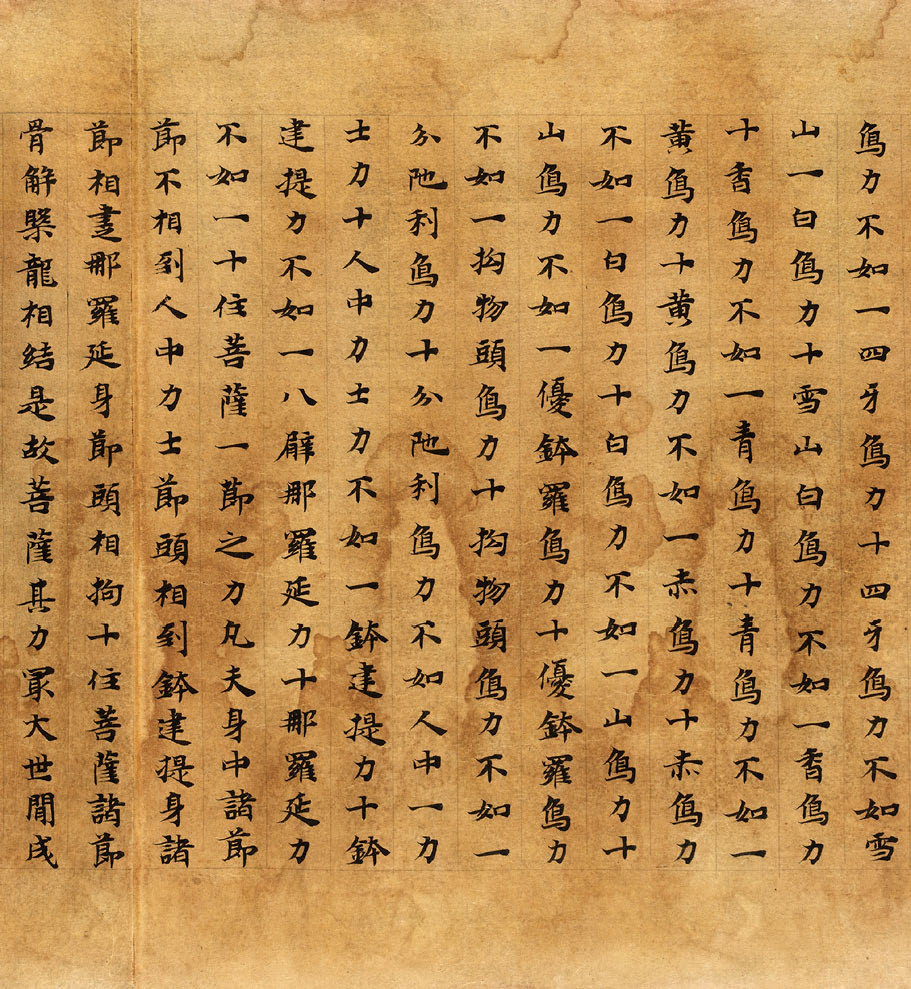 象力不如一四牙象力十四牙象力不如雪
山一白象力十雪山白象力不如一香象力
十香象力不如一青象力十青象力不如一
黄象力十黄象力不如一赤象力十赤象力
不如一白象力十白象力不如一山象力十
山象力不如一優鉢羅象力十優鉢羅象力
不如一拘物頭象力十拘物頭象力不如一
分陁利象力十分陁利象力不如人中一力
士力十人中力士力不如一鉢建提力十鉢
建提力不如一八臂那羅延力十那羅延力
不如一十住菩薩一莭之力凡夫身中諸莭
莭不相到人中力士莭頭相到鉢建提身諸
莭相那羅延身莭頭相拘十住菩薩諸莭
骨解槃龍相結是故菩薩其力冣大世間成